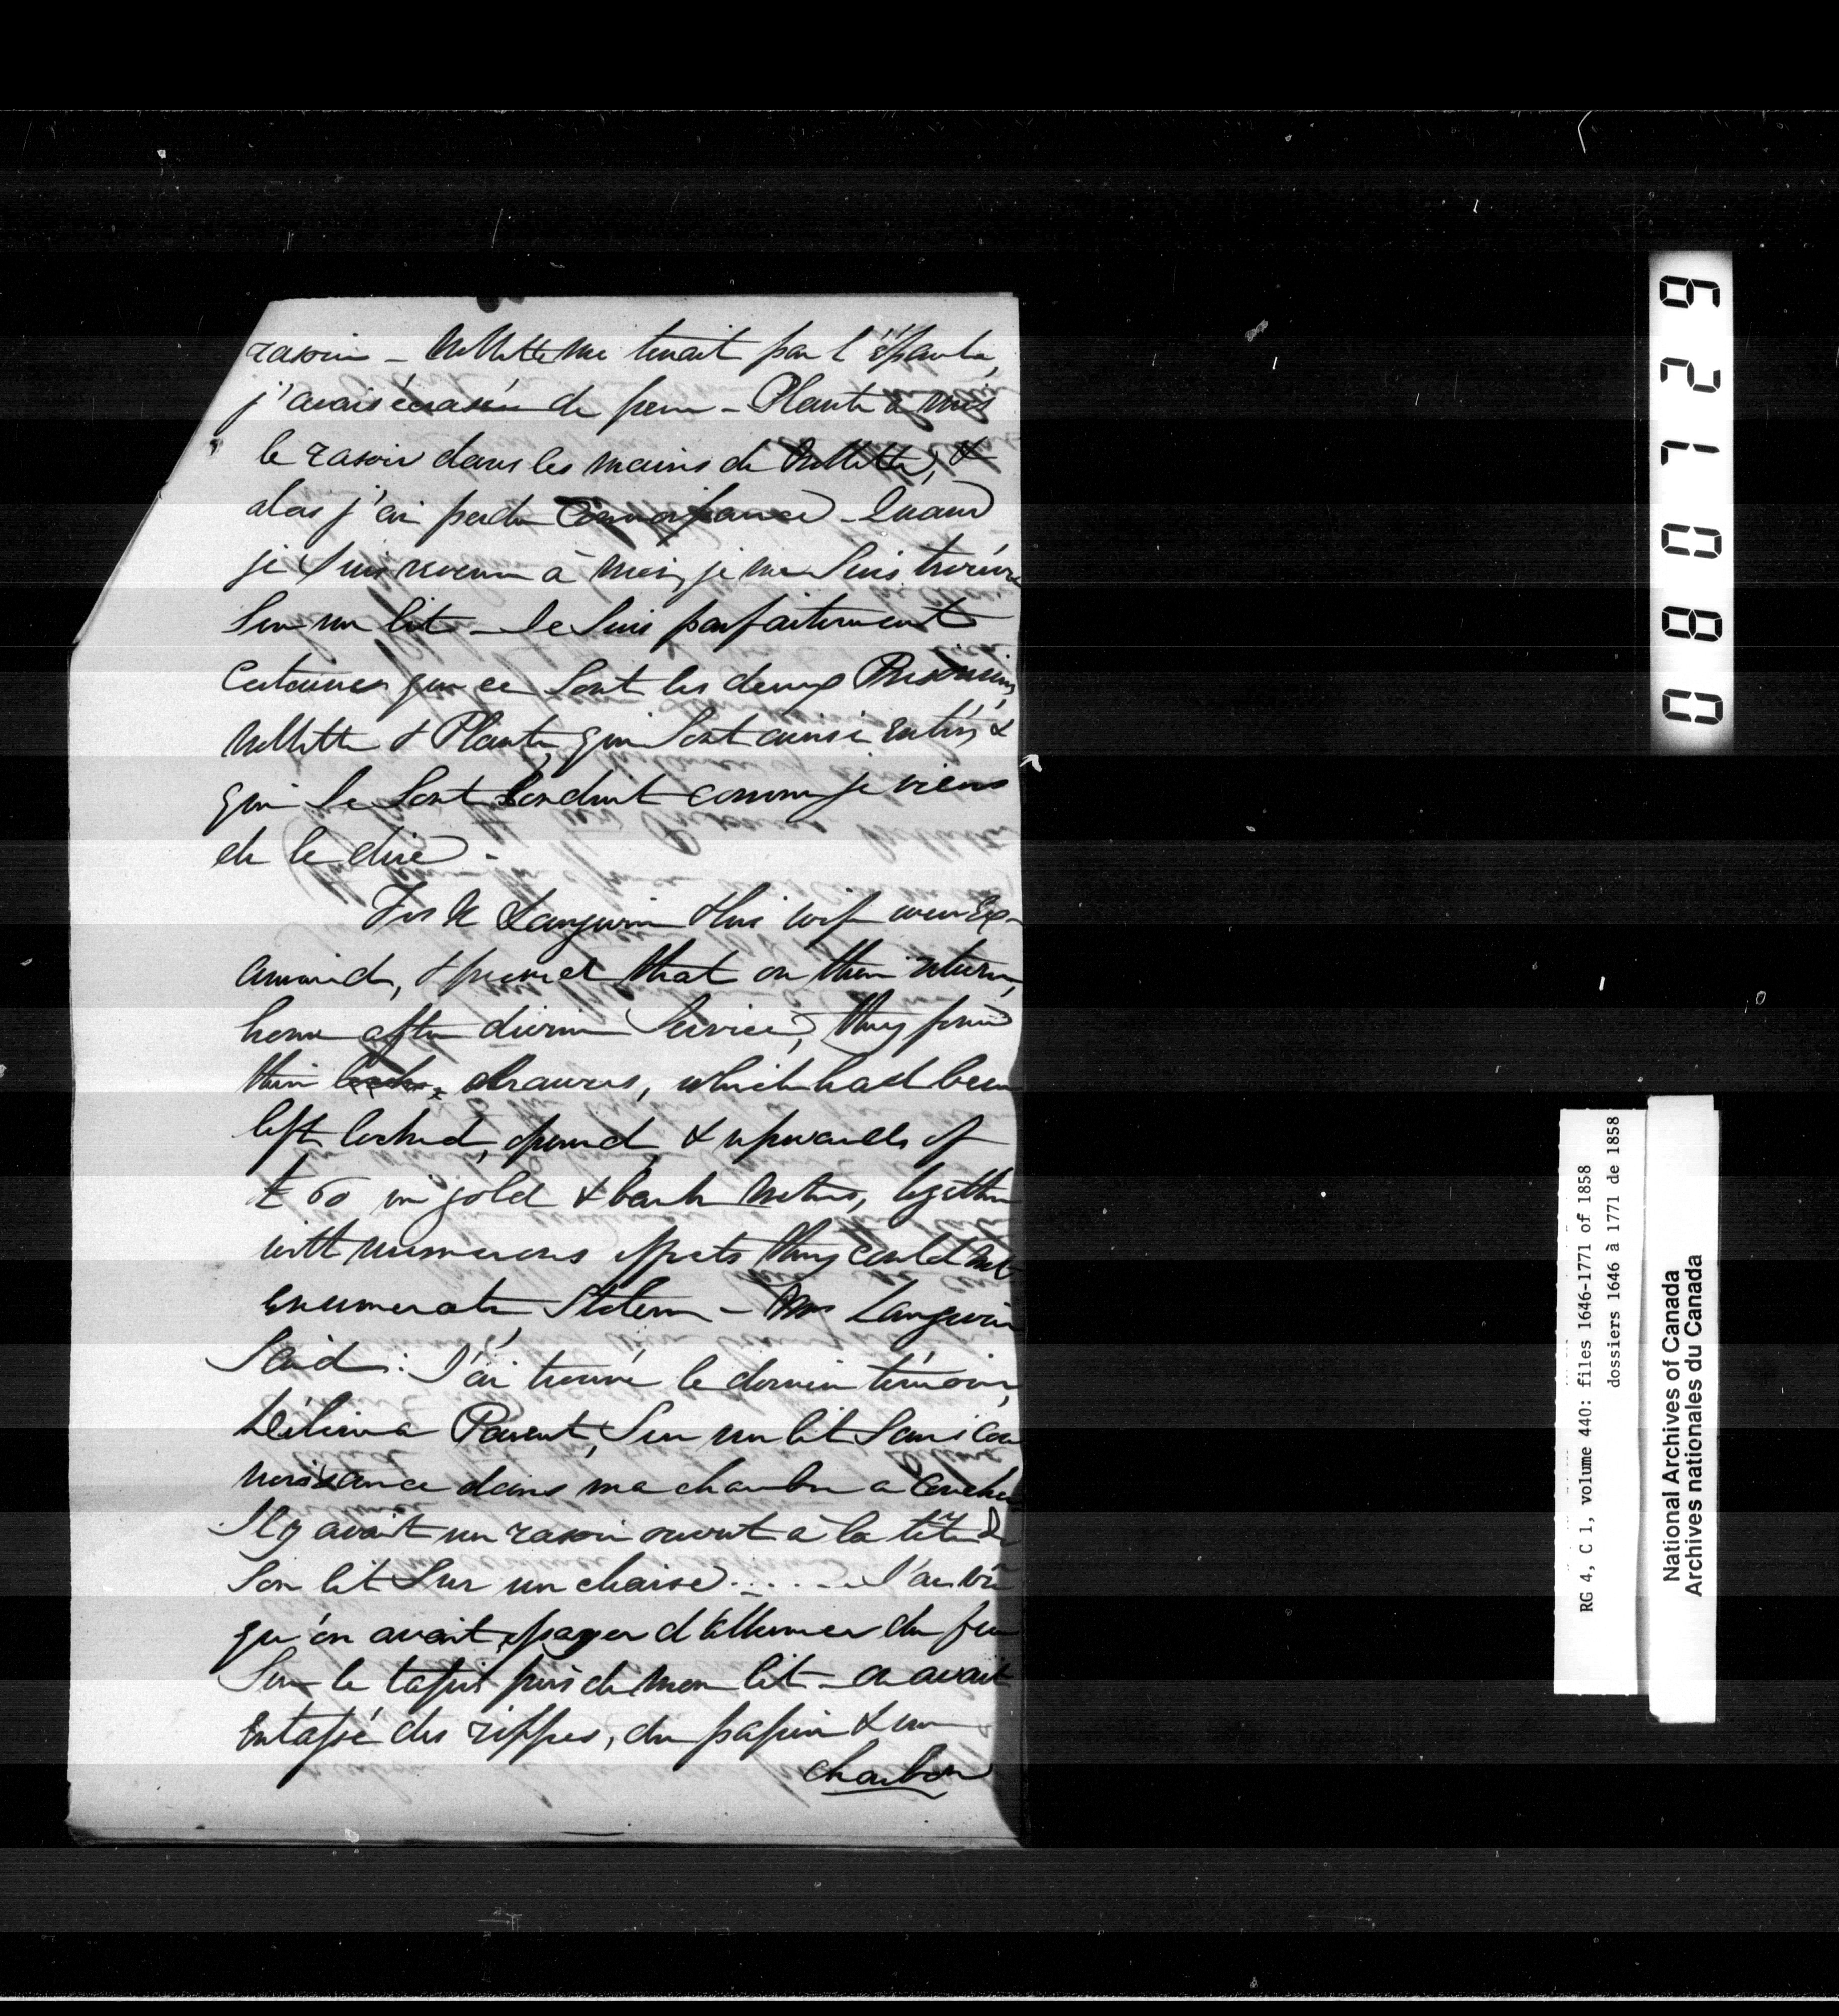 rasoir – Nollette me tenait par l'épaule,
j'avais de peur – Plante a mis
le rasoir dans les mains de Nollette, &
alors j'ai perdu connoissance – Quand
je suis revenue à moi, je me suis trouvée
sur un lit – Je suis parfaitement
certaine que ce sont les deux Prisoniers,
Nollette & Plante, qui sont ainsi entrés &
qui se sont conduit comme je viens
de le dire –
Langevin & his wife were Ex-
amined, & proved that on their return,
home after divine Service, they found
their drawers, which had been
left locked, opened, & upwards of
£60 in gold & bank Notes, together
with numerous effects they could not
enumerate, Stolen – Mrs Langevin
Said: J'ai trouvé le dernier témoin,
Délima Parent, sur un lit sans con
noissance dans ma chambre a coucher
Il y avait un rasoir ouvert à la tête de
son lit sur un chaise. . . . – J'ai vû
qu'on avait essayer d'allumer du feu
sur le tapis près de mon lit – on avait
entassé des rippes, du papier & un
charbon
0 8 0 1 7 2 9
RG 4, C 1, volume 440: files 1646-1771 of 1858
dossiers 1646 à 1771 de 1858
National Archives of Canada
Archives nationales du Canada